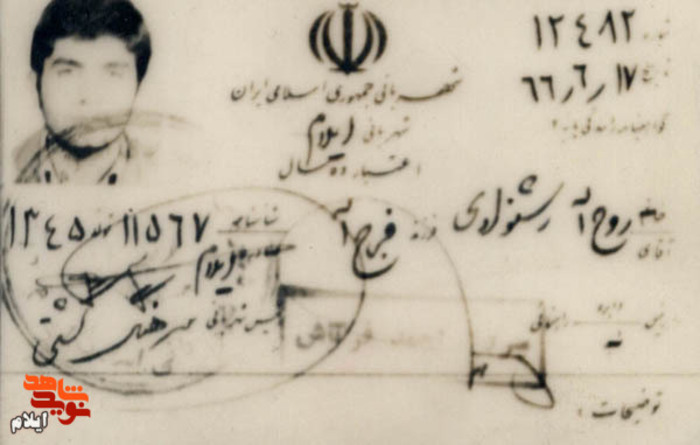 شماره ۱۲۴۸۲
تاریخ ۶۶/۶/۱۷
گواهینامه رانندگی پایه ۲
شهربانی جمهوری اسلامی ایران
شهربانی ایلام
اعتبار ده سال
خانم آقای روح اله رستنوادی فرزند فرج اله
شناسنامه ۱۱۵۶۷ متولد ۱۳۴۵
صادره ایلام
رئیس دایره راهنمائی
رئیس شهربانی
سرهنگ
توضیحات :
نوید شاهد
ایلام